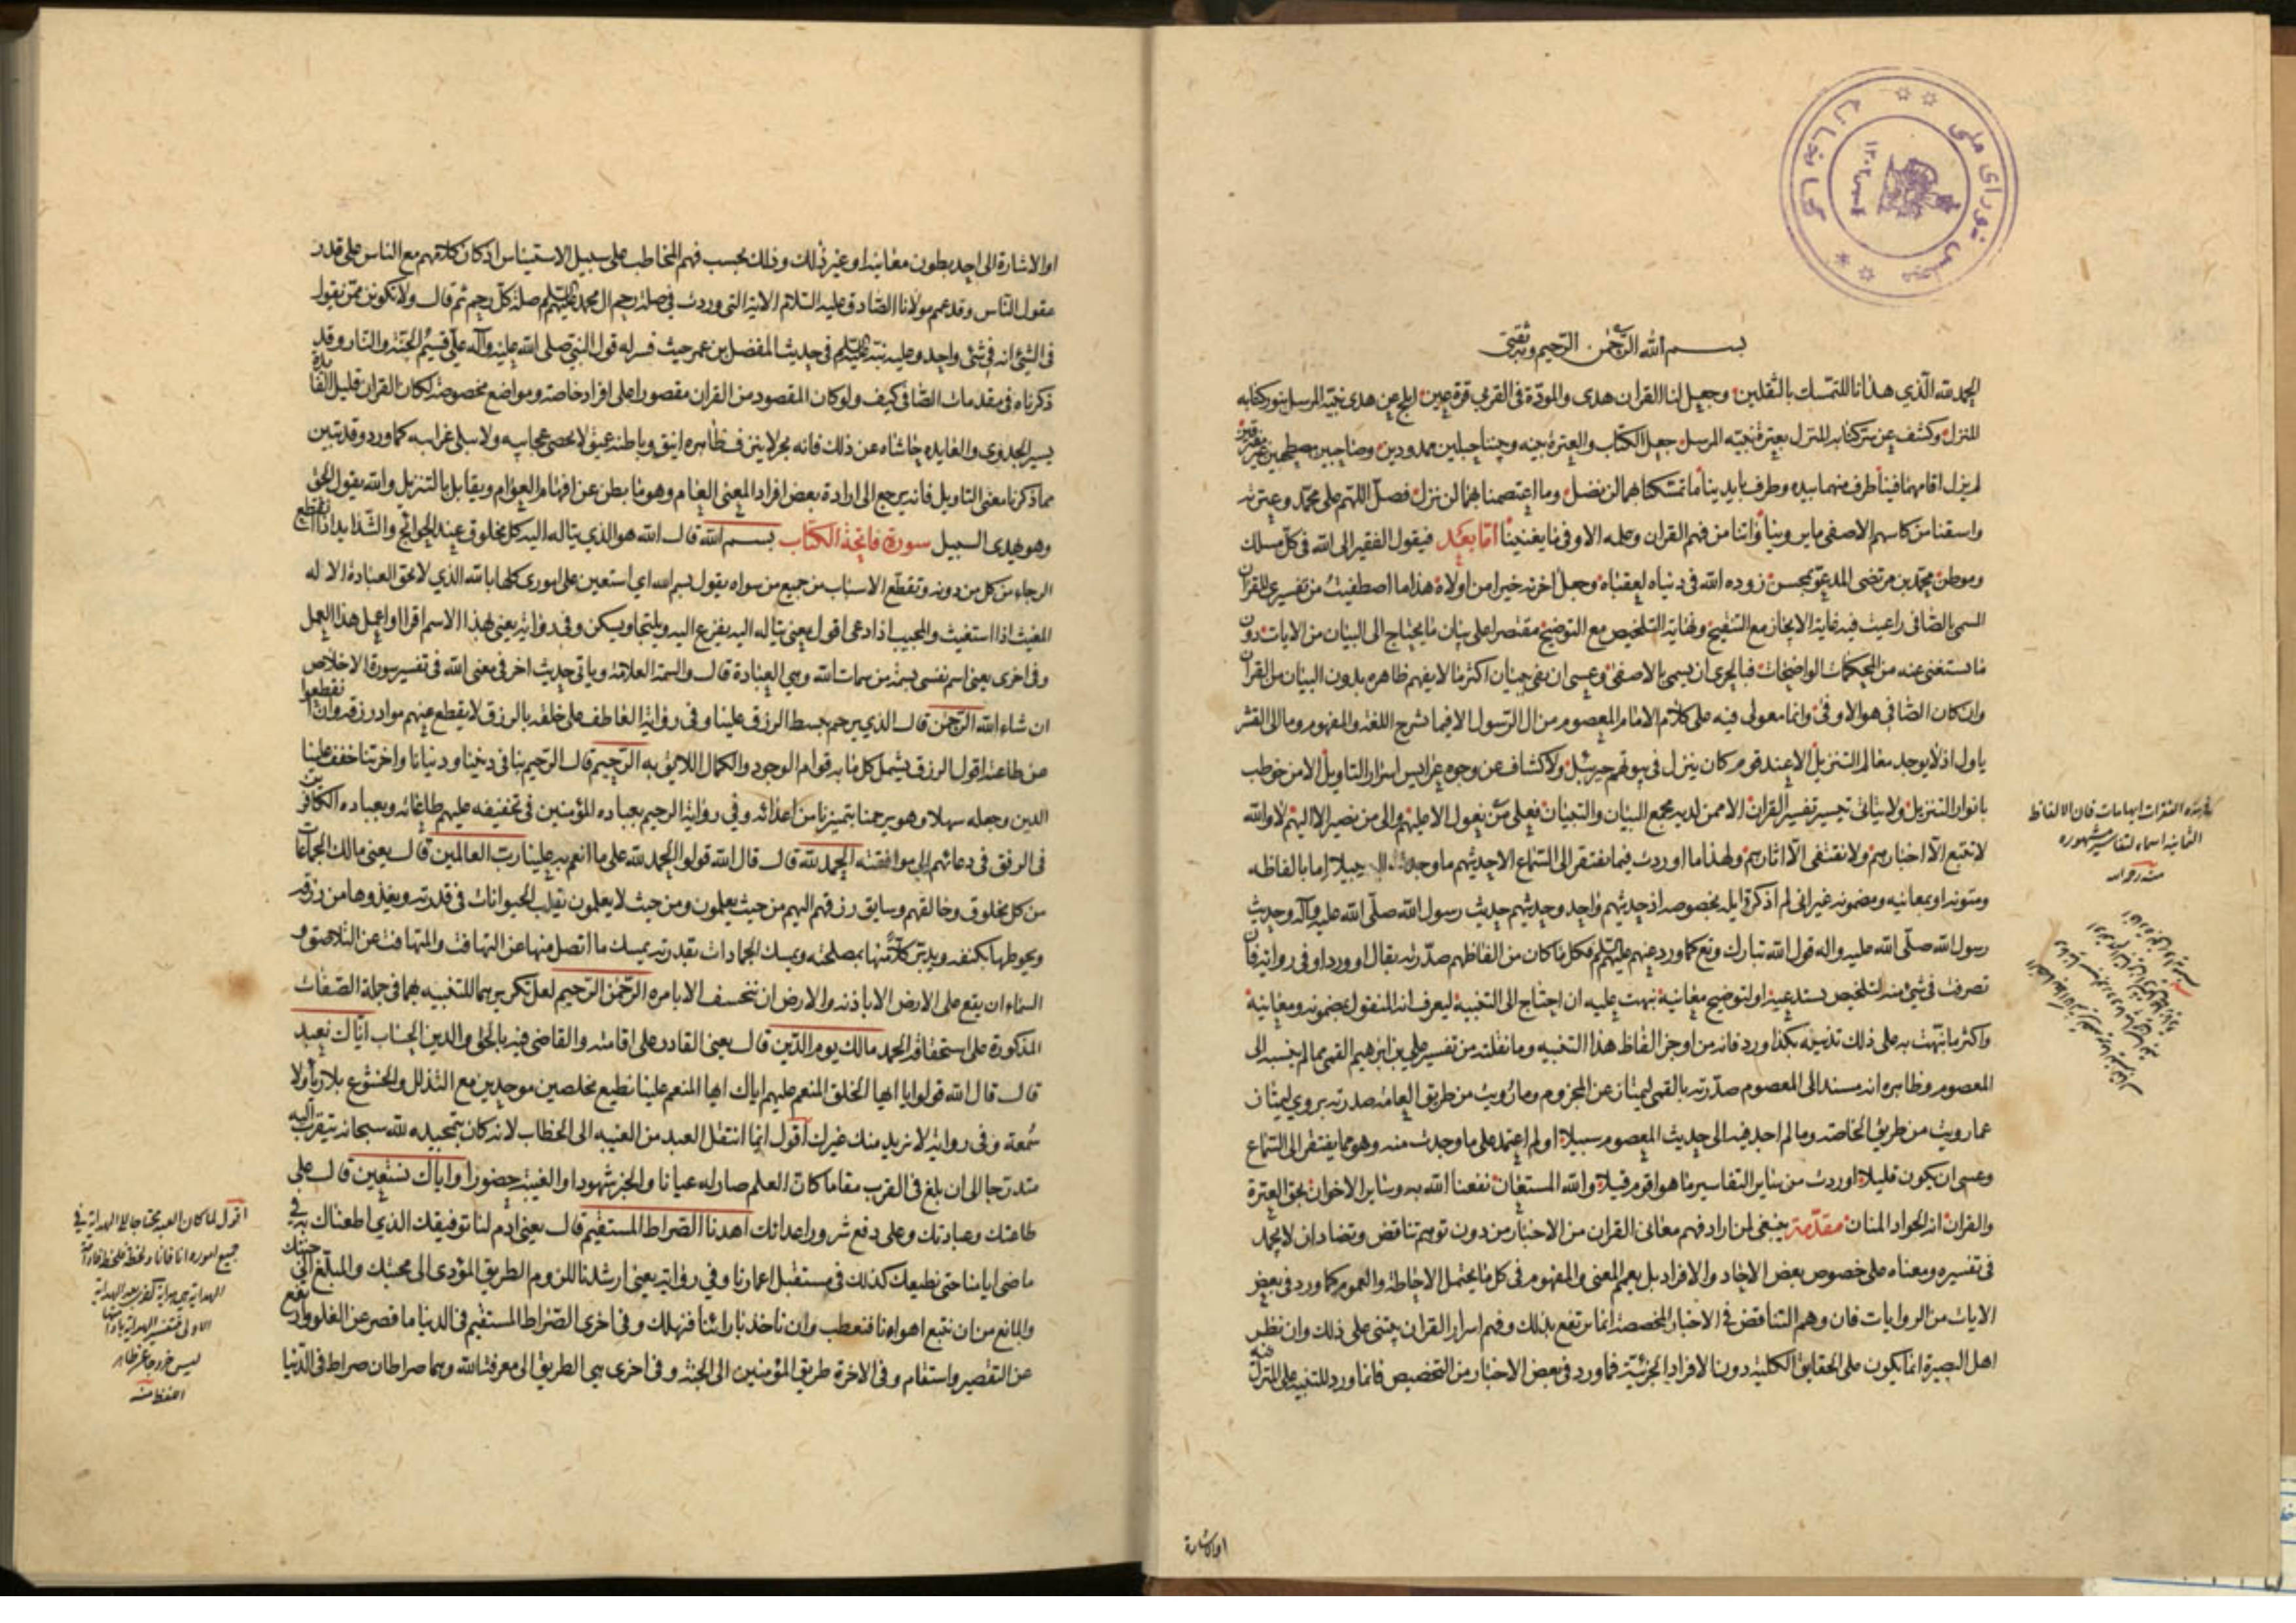 بسم الله الرحمن الرحيم وبه ثقتي
الحمد لله الذي هدانا للتمسك بالثقلين وجعل لنا القران هدى والمودة في القربى قرة عين ابلج عن هدى نبيه المرسل بنور كتابه
المنزل وكشف عن سر كتابه المنزل بعترة نبيه المرسل جعل الكتاب والعترة بينه وبيننا حبلين ممدودين وصاحبين مصطحبين غير مفترقين
لم يزل اقامهما فينا طرف منهما بيده وطرف بايدينا ما تمسكنا بهما لن نضل وما اعتصمنا بهما لن نزل فصل اللهم على محمد وعترته
واسقنا من كاسهم الاصفى ما يروينا واتنا من فهم القران وعلمه الاوفى ما يغنينا اما بعد فيقول الفقير الى الله في كل مسلك
وموطن محمد بن مرتضى المدعو بمحسن زوده الله في دنياه لعقباه وجعل اخرته خيرا من اولاه هذا ما اصطفيت من تفسيري للقران
المسمى بالصافي راعيت فيه غاية الايجاز مع التنقيح ونهاية التلخيص مع التوضيح مقتصرا على بيان ما يحتاج الى البيان من الايات دون
ما يستغنى عنه من المحكمات الواضحات فبالحري ان يسمى بالاصفى وعسى ان يفي ببيان اكثر ما لا يفهم ظاهره بدون البيان من القران
وان كان الصافي هو الاوفى وانما معولي فيه على كلام الامام المعصوم من ال الرسول الا فيما يشرح اللغة والمفهوم وما الى القشر
ياول اذ لا يوجد معالم التنزيل الا عند قوم كان ينزل في بيوتهم جبرئيل ولا كشاف عن وجوه عرائس اسرار التاويل الا من خوطب
بانوار التنزيل ولا يتاتى تيسير تفسير القران الا ممن لديه مجمع البيان والتبيان فعلى من نعول الا عليهم والى من نصير الا اليهم لا والله
لا نتبع الا اخبارهم ولا نقتفي الا اثارهم ولهذا ما اوردت فيما يفتقر الى السماع الا حديثهم ما وجدت اليه سبيلا اما بالفاظه
ومتونه او بمعانيه ومضمونه غير اني لم اذكر قايله بخصوصه اذ حديثهم واحد وحديثهم حديث رسول الله صلى الله عليه وآله وحديث
رسول الله صلى الله عليه واله قول الله تبارك وتع كما ورد عنهم عليهم السلم فكل ما كان من الفاظهم صدرته بقال او ورد او في رواية فان
تصرفت في شيء منه لتلخيص يستدعيه او لتوضيح معانيه نبهت عليه ان احتاج الى التنبيه ليعرف انه المنقول بمضمونه ومعانيه
واكثر ما نبهت به على ذلك تذييله بكذا ورد فانه من اوجز الفاظ هذا التنبيه وما نقلته من تفسير علي بن ابرهيم القمي مما لم ينسبه الى
المعصوم وظاهره انه مسند الى المعصوم صدرته بالقمي ليمتاز عن المجزوم وما رويت من طريق العامة صدرته بروي ليمتاز
عما رويت من طريق الخاصة وما لم اجد فيه الى حديث المعصوم سبيلا او لم اعتمد على ما وجدت منه وهو مما يفتقر الى السماع
وعسى ان يكون قليلا اوردت من ساير التفاسير ما هو اقوم قيلا والله المستعان نفعنا الله به وساير الاخوان بحق العترة
والقران انه الجواد المنان مقدمة ينبغي لمن اراد فهم معاني القران من الاخبار من دون توهم تناقض وتضاد ان لا يجمد
في تفسيره ومعناه على خصوص بعض الاحاد والافراد بل يعمم المعنى والمفهوم في كل ما يحتمل الاحاطة والعموم كما ورد في بعض
الايات من الروايات فان وهم التناقض في الاخبار المخصصة انما يرتفع بذلك وفهم اسرار القران يبتنى على ذلك وان نظر
اهل البصيرة انما يكون على الحقايق الكلية دون الافراد الجزئية فما ورد في بعض الاخبار من التخصيص فانما ورد للتنبيه على المنزل فيه
او الاشارة
في هذه الفقرات ايهامات فان الالفاظ
الثمانية اسماء لتفاسير مشهورة
او الاشارة الى احد بطون معانيه او غير ذلك وذلك بحسب فهم المخاطب على سبيل الاستيناس اذ كان كلامهم مع الناس على قدر
عقول الناس وقد عمم مولانا الصادق عليه السلام الاية التي وردت في صلة رحم ال محمد عليهم السلم صلة كل رحم ثم قال ولا تكونن ممن يقول
في الشيء انه في شيء واحد وعليه نبه عليه السلم في حديث المفضل بن عمر حيث فسر له قول النبي صلى الله عليه وآله علي قسيم الجنة والنار وقد
ذكرناه في مقدمات الصافي كيف ولو كان المقصود من القران مقصورا على افراد خاصة ومواضع مخصوصة لكان القران قليل الفائدة
يسير الجدوى والعايدة حاشاه عن ذلك فانه بحر لا ينزف ظاهره انيق وباطنه عميق لا تحصى عجايبه ولا تبلى غرايبه كما ورد وقد تبين
مما ذكرنا معنى التاويل فانه يرجع الى ارادة بعض افراد المعنى العام وهو ما بطن عن افهام العوام ويقابل بالتنزيل والله يقول الحق
وهو يهدي السبيل سورة فاتحة الكتاب بسم الله قال الله هو الذي يتاله اليه كل مخلوق عند الحوائج والشدايد اذا انقطع
الرجاء من كل من دونه وتقطع الاسباب من جميع من سواه يقول بسم الله اي استعين على اموري كلها بالله الذي لا تحق العبادة الا له
المغيث اذا استغيث والمجيب اذا دعي اقول يعني يتاله اليه يفزع اليه ويلتجا ويسكن وفي رواية يعني بهذا الاسم اقرا او اعمل هذا العمل
وفي اخرى يعني اسم نفسي بسمة من سمات الله وهي العبادة قال والسمة العلامة وياتي حديث اخر في معنى الله في تفسير سورة الاخلاص
ان شاء الله الرحمن قال الذي يرحم ببسط الرزق علينا وفي رواية العاطف على خلقه بالرزق لا يقطع عنهم مواد رزقه وان انقطعوا
عن طاعته اقول الرزق يشمل كل ما به قوام الوجود والكمال اللائق به الرحيم قال الرحيم بنا في ديننا ودنيانا واخرتنا خفف علينا
الدين وجعله سهلا وهو يرحمنا بتميزنا من اعدائه وفي رواية الرحيم بعباده المؤمنين في تخفيفه عليهم طاعاته وبعباده الكافرين
في الرفق في دعائهم الى موافقته الحمد لله قال قال الله قولوا الحمد لله على ما انعم به علينا رب العالمين قال يعني مالك الجماعات
من كل مخلوق وخالقهم وسايق رزقهم اليهم من حيث يعلمون ومن حيث لا يعلمون يقلب الحيوانات في قدرته ويغذوها من رزقه
ويحوطها بكنفه ويدبر كلا منها بمصلحته ويمسك الجمادات بقدرته يمسك ما اتصل منها عن التهافت والمتهافت عن التلاصق و
السماء ان يقع على الارض الا باذنه والارض ان تنخسف الا بامره الرحمن الرحيم لعل تكريرهما للتنبيه بهما في جملة الصفات
المذكورة على استحقاقه الحمد مالك يوم الدين قال يعني القادر على اقامته والقاضي فيه بالحق والدين الحساب اياك نعبد
قال قال الله قولوا يا ايها الخلق المنعم عليهم اياك ايها المنعم علينا نطيع مخلصين موحدين مع التذلل والخشوع بلا رياء ولا
سمعة وفي رواية لا نريد منك غيرك اقول انما انتقل العبد من الغيبة الى الخطاب لانه كان بتمجيده لله سبحانه يتقرب اليه
متدرجا الى ان بلغ في القرب مقاما كان العلم صار له عيانا والخبر شهودا والغيبة حضورا واياك نستعين قال على
طاعتك وعبادتك وعلى دفع شرور اعدائك اهدنا الصراط المستقيم قال يعني ادم لنا توفيقك الذي اطعناك به في
ماضي ايامنا حتى نطيعك كذلك في مستقبل اعمارنا وفي رواية يعني ارشدنا للزوم الطريق المؤدي الى محبتك والمبلغ الى جنتك
والمانع من ان نتبع اهواءنا فنعطب وان ناخذ بارائنا فنهلك وفي اخرى الصراط المستقيم في الدنيا ما قصر عن الغلو وارتفع
عن التقصير واستقام وفي الاخرة طريق المؤمنين الى الجنة وفي اخرى هي الطريق الى معرفة الله وهما صراطان صراط في الدنيا
اقول لما كان العبد محتاجا الى الهداية في
جميع اموره انا فانا ولحظة فلحظة فادامة
الهداية هي هداية اخرى بعد الهداية
الاولى فتفسير الهداية بادامتها
ليس خروجا عن ظاهر
اللفظ منه